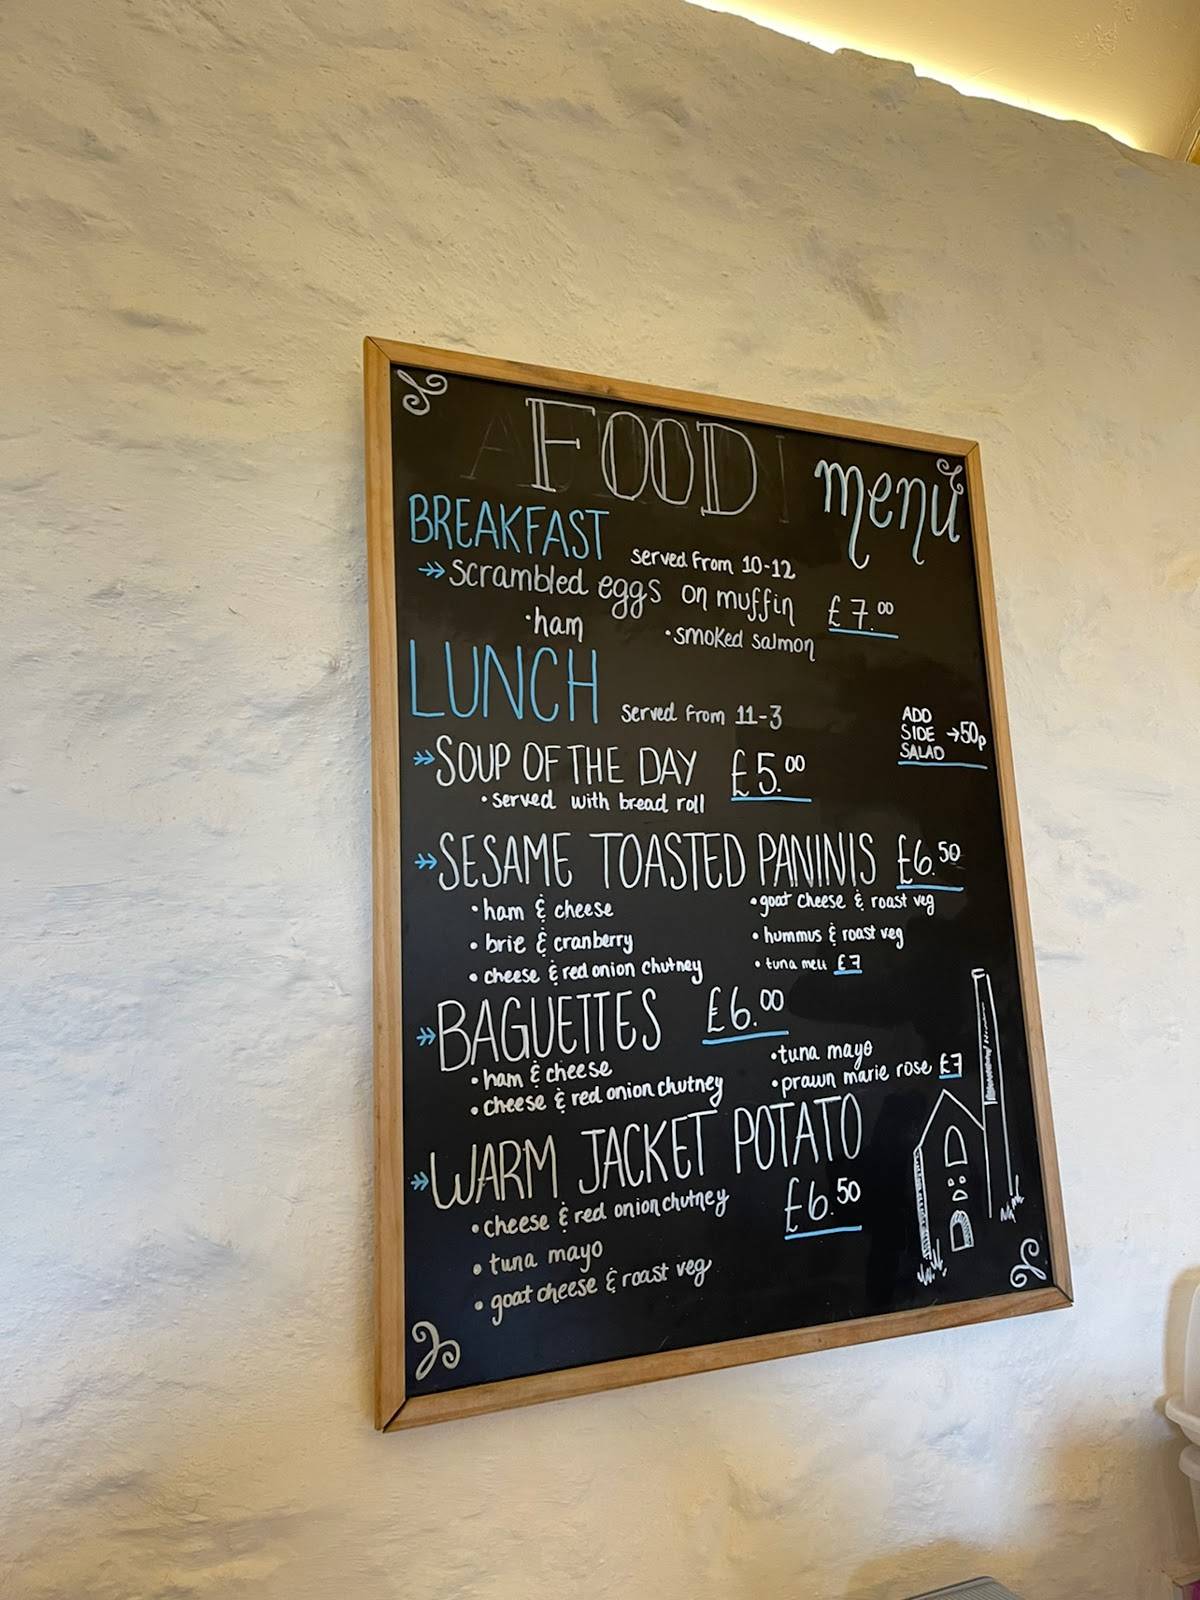 FOOD menu
BREAKFAST served from 10-12
→ scrambled eggs on muffin £7.00
• ham • smoked salmon
LUNCH served from 11-3
ADD
SIDE → 50p
SALAD
→ SOUP OF THE DAY £5.00
• served with bread roll
→ SESAME TOASTED PANINIS £6.50
• ham & cheese • goat cheese & roast veg
• brie & cranberry • hummus & roast veg
• cheese & red onion chutney • tuna melt £7
→ BAGUETTES £6.00
• ham & cheese • tuna mayo
• cheese & red onion chutney • prawn marie rose £7
→ WARM JACKET POTATO
£6.50
• cheese & red onion chutney
• tuna mayo
• goat cheese & roast veg